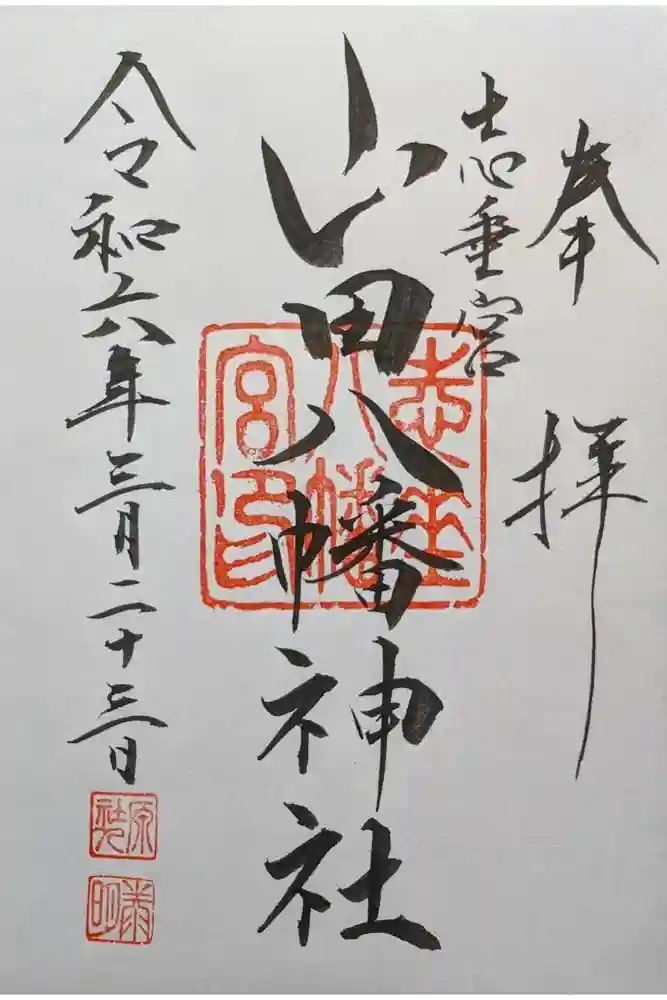 奉拝
志垂宮
山田八幡神社
志垂八幡宮印
令和六年三月二十三日